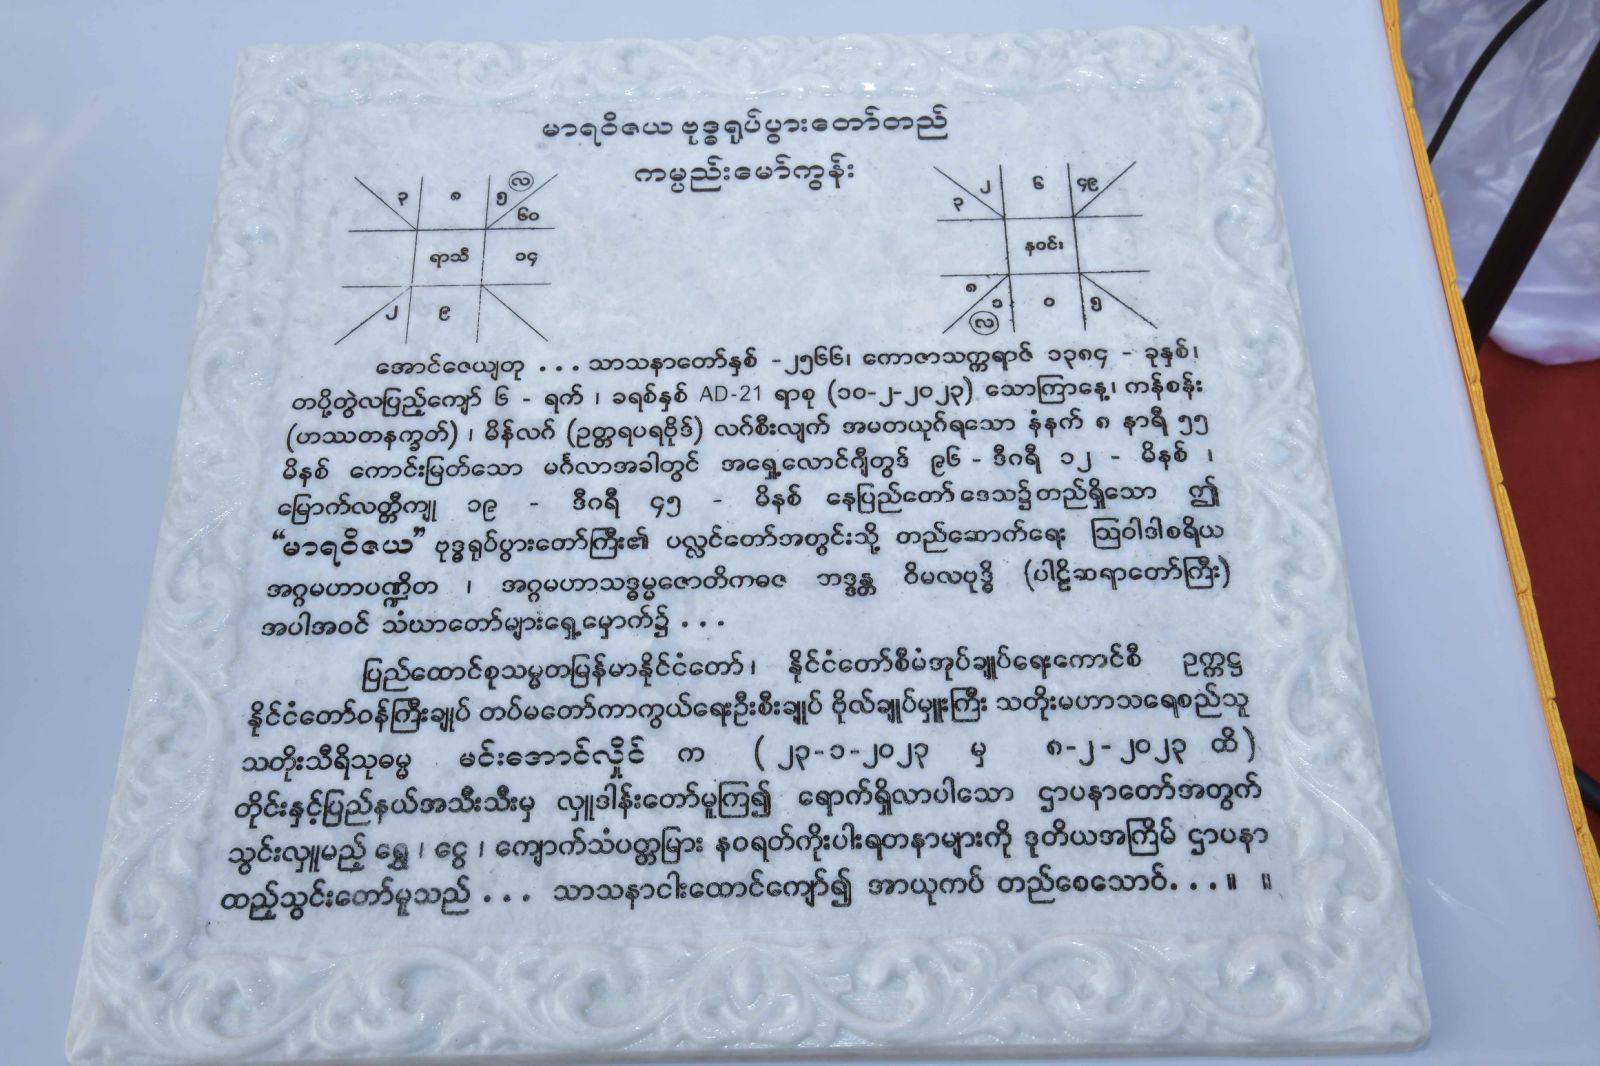 မာရဝိဇယ ဗုဒ္ဓရုပ်ပွားတော်တည်
ကမ္ပည်းမော်ကွန်း
၃ ၈ ၅ လ
၆၀
ရာသီ ၀၄
၂ ၉
၂ ၆ ၄၉
၃
နဝင်း
၈ ၁ ၀ ၅
လ
အောင်ဇေယျတု ... သာသနာတော်နှစ် -၂၅၆၆၊ ကောဇာသက္ကရာဇ် ၁၃၈၄ - ခုနှစ်၊
တပို့တွဲလပြည့်ကျော် ၆ - ရက် ၊ ခရစ်နှစ် AD-21 ရာစု (၁၀-၂-၂၀၂၃) သောကြာနေ့၊ ကန်စန်း
(ဟဿတနက္ခတ်) ၊ မိန်လဂ် (ဥတ္တရပရဗိုဒ်) လဂ်စီးလျက် အမတယုဂ်ရသော နံနက် ၈ နာရီ ၅၅
မိနစ် ကောင်းမြတ်သော မင်္ဂလာအခါတွင် အရှေ့လောင်ဂျီတွဒ် ၉၆ - ဒီဂရီ ၁၂ - မိနစ် ၊
မြောက်လတ္တီကျု ၁၉ - ဒီဂရီ ၄၅ - မိနစ် နေပြည်တော် ဒေသ၌ တည်ရှိသော ဤ
“မာရဝိဇယ” ဗုဒ္ဓရုပ်ပွားတော်ကြီး၏ ပလ္လင်တော်အတွင်းသို့ တည်ဆောက်ရေး ဩဝါဒါစရိယ
အဂ္ဂမဟာပဏ္ဍိတ ၊ အဂ္ဂမဟာသဒ္ဓမ္မဇောတိကဓဇ ဘဒ္ဒန္တ ဝိမလဗုဒ္ဓိ (ပါဠိဆရာတော်ကြီး)
အပါအဝင် သံဃာတော်များရှေ့မှောက်၌ ...
ပြည်ထောင်စုသမ္မတမြန်မာနိုင်ငံတော်၊ နိုင်ငံတော်စီမံအုပ်ချုပ်ရေးကောင်စီ ဥက္ကဋ္ဌ
နိုင်ငံတော်ဝန်ကြီးချုပ် တပ်မတော်ကာကွယ်ရေးဦးစီးချုပ် ဗိုလ်ချုပ်မှူးကြီး သတိုးမဟာသရေစည်သူ
သတိုးသီရိသုဓမ္မ မင်းအောင်လှိုင် က (၂၃-၁-၂၀၂၃ မှ ၈-၂-၂၀၂၃ ထိ)
တိုင်းနှင့်ပြည်နယ်အသီးသီးမှ လှူဒါန်းတော်မူကြ၍ ရောက်ရှိလာပါသော ဌာပနာတော်အတွက်
သွင်းလှူမည့် ရွှေ ၊ ငွေ ၊ ကျောက်သံပတ္တမြား နဝရတ်ကိုးပါးရတနာများကို ဒုတိယအကြိမ် ဌာပနာ
ထည့်သွင်းတော်မူသည် ... သာသနာငါးထောင်ကျော်၍ အာယုကပ် တည်စေသောဝ်...။ ။